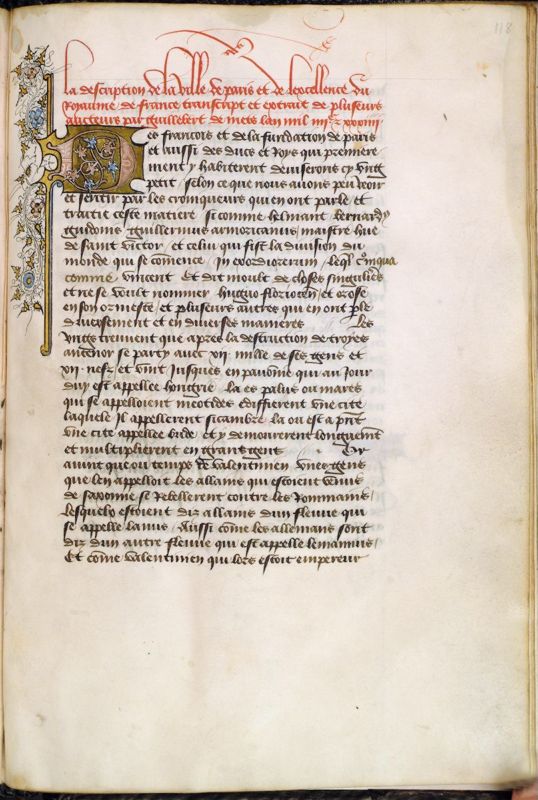 118
la description de la ville de paris et de lexcellence du
Royaume de france transcript et extrait de pluseurs
aucteurs par guillebert de mets lan mil iiii c et xxxiiii
Des francois et de la fundation de paris
et aussi des ducs et Roys qui premiere
ment y habiterent deuiserons cy vng
petit / selon ce que nous auons peu veoir
et sentir par les croniqueurs qui en ont parle et
traitie ceste matiere / si comme helinant / bernardy
guidonis / guillermus armoricanus / maistre hue
de saint victor / et celui qui fist la diuision du
monde qui se comence / In exordio rerum / leql
comme / vincent Et dit moult de choses singulieres
et ne se voult nommer / hugue floriacen / et orose
en son ormeste / et pluseurs autres qui en ont ple
diuersement et en diuerses manieres les
vngs treuuent que apres la destruction de troyes
anthenor se party auec xii mille de ses gens et
vii nefz et vint jusques en panonie qui au jour
duy est appellee hongrie la es palus ou mares
qui se appelloient meotides ediffierent vne cite
laquele Il appellerent sicambre la ou est a pnt
vne cite appellee bude / et y demourerent longuemt
et multiplierent en grans gens Or
auint que ou temps de valentinien vnes gens
que len appelloit les allains qui estoient venuis
de saxonne se Rebellerent contre les Rommains /
lesquelx estoient diz allains dun fleuue qui
se appelle lanus / Aussi come les allemans sont
diz dun autre fleuue qui est appelle lemannus /
Et come valentinien qui lors estoit empereur